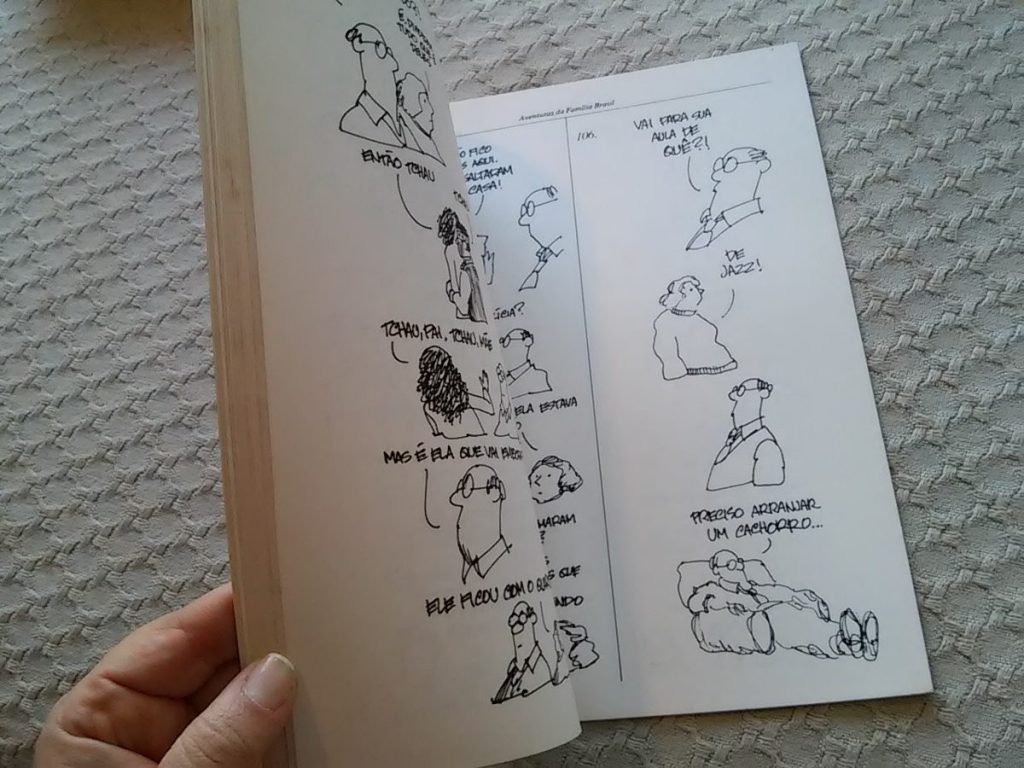 ENTÃO TCHAU
TCHAU, PAI, TCHAU, MÃE
MAS É ELA QUE VAI
ELE FICOU COM O
Aventuras da Família Brasil
FICO
AQUI.
CASA!
ELA ESTAVA
QUE
106.
VAI PARA SUA
AULA DE
QUÊ?!
DE
JAZZ!
PRECISO ARRANJAR
UM CACHORRO...